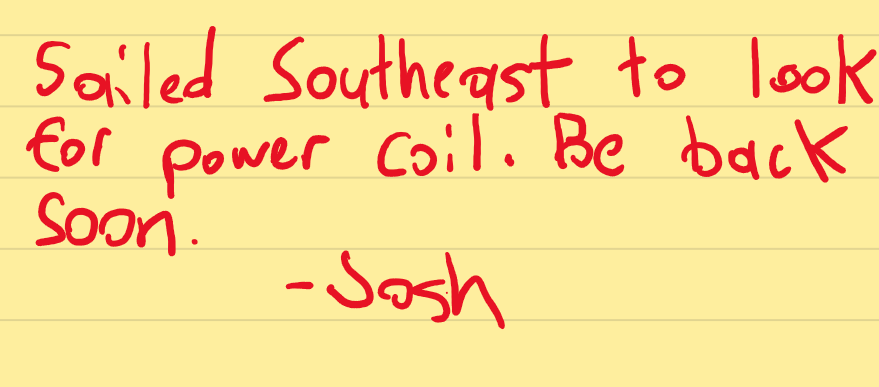 Sailed Southeast to look
for power coil. Be back
soon.
-Josh